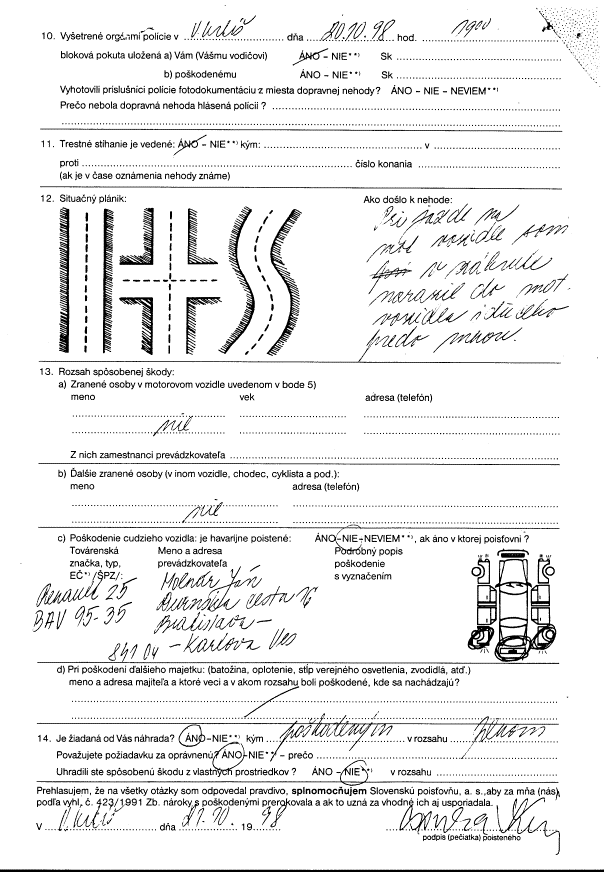 10. Vyšetrené orgánmi polície v V. Krtíš dňa 20.10.98 hod. 19oo
bloková pokuta uložená a) Vám (Vášmu vodičovi) ÁNO – NIE**) Sk
b) poškodenému ÁNO – NIE**) Sk
Vyhotovili príslušníci polície fotodokumentáciu z miesta dopravnej nehody? ÁNO – NIE – NEVIEM**)
Prečo nebola dopravná nehoda hlásená polícii ?
11. Trestné stíhanie je vedené: ÁNO – NIE**) kým: v
proti číslo konania
(ak je v čase oznámenia nehody známe)
12. Situačný plánik: Ako došlo k nehode:
Pri jazde na
mot vozidle som
v zákrute
narazil do mot.
vozidla idúceho
predo mnou.
13. Rozsah spôsobenej škody:
a) Zranené osoby v motorovom vozidle uvedenom v bode 5)
meno vek adresa (telefón)
nie
Z nich zamestnanci prevádzkovateľa
b) Ďalšie zranené osoby (v inom vozidle, chodec, cyklista a pod.):
meno adresa (telefón)
nie
c) Poškodenie cudzieho vozidla: je havarijne poistené: ÁNO–NIE–NEVIEM**), ak áno v ktorej poisťovni ?
Továrenská Meno a adresa Podrobný popis
značka, typ, prevádzkovateľa poškodenie
EČ*)/ŠPZ/: s vyznačením
Renault 25 Molnár Ján
BAV 95-35 DurnSka cesta 16
Bratislava –
841 04 – Karlova Ves
d) Pri poškodení ďalšieho majetku: (batožina, oplotenie, stĺp verejného osvetlenia, zvodidlá, atď.)
meno a adresa majiteľa a ktoré veci a v akom rozsahu boli poškodené, kde sa nachádzajú?
14. Je žiadaná od Vás náhrada? ÁNO–NIE**) kým poškodeným v rozsahu plnom
Považujete požiadavku za oprávnenú? ÁNO–NIE**) – prečo
Uhradili ste spôsobenú škodu z vlastných prostriedkov ? ÁNO –NIE**) v rozsahu
Prehlasujem, že na všetky otázky som odpovedal pravdivo, splnomocňujem Slovenskú poisťovňu, a. s.,aby za mňa (nás)
podľa vyhl. č. 423/1991 Zb. nároky s poškodenými prerokovala a ak to uzná za vhodné ich aj usporiadala.
V V. Krtíš dňa 21.10. 19 98
podpis (pečiatka) poisteného